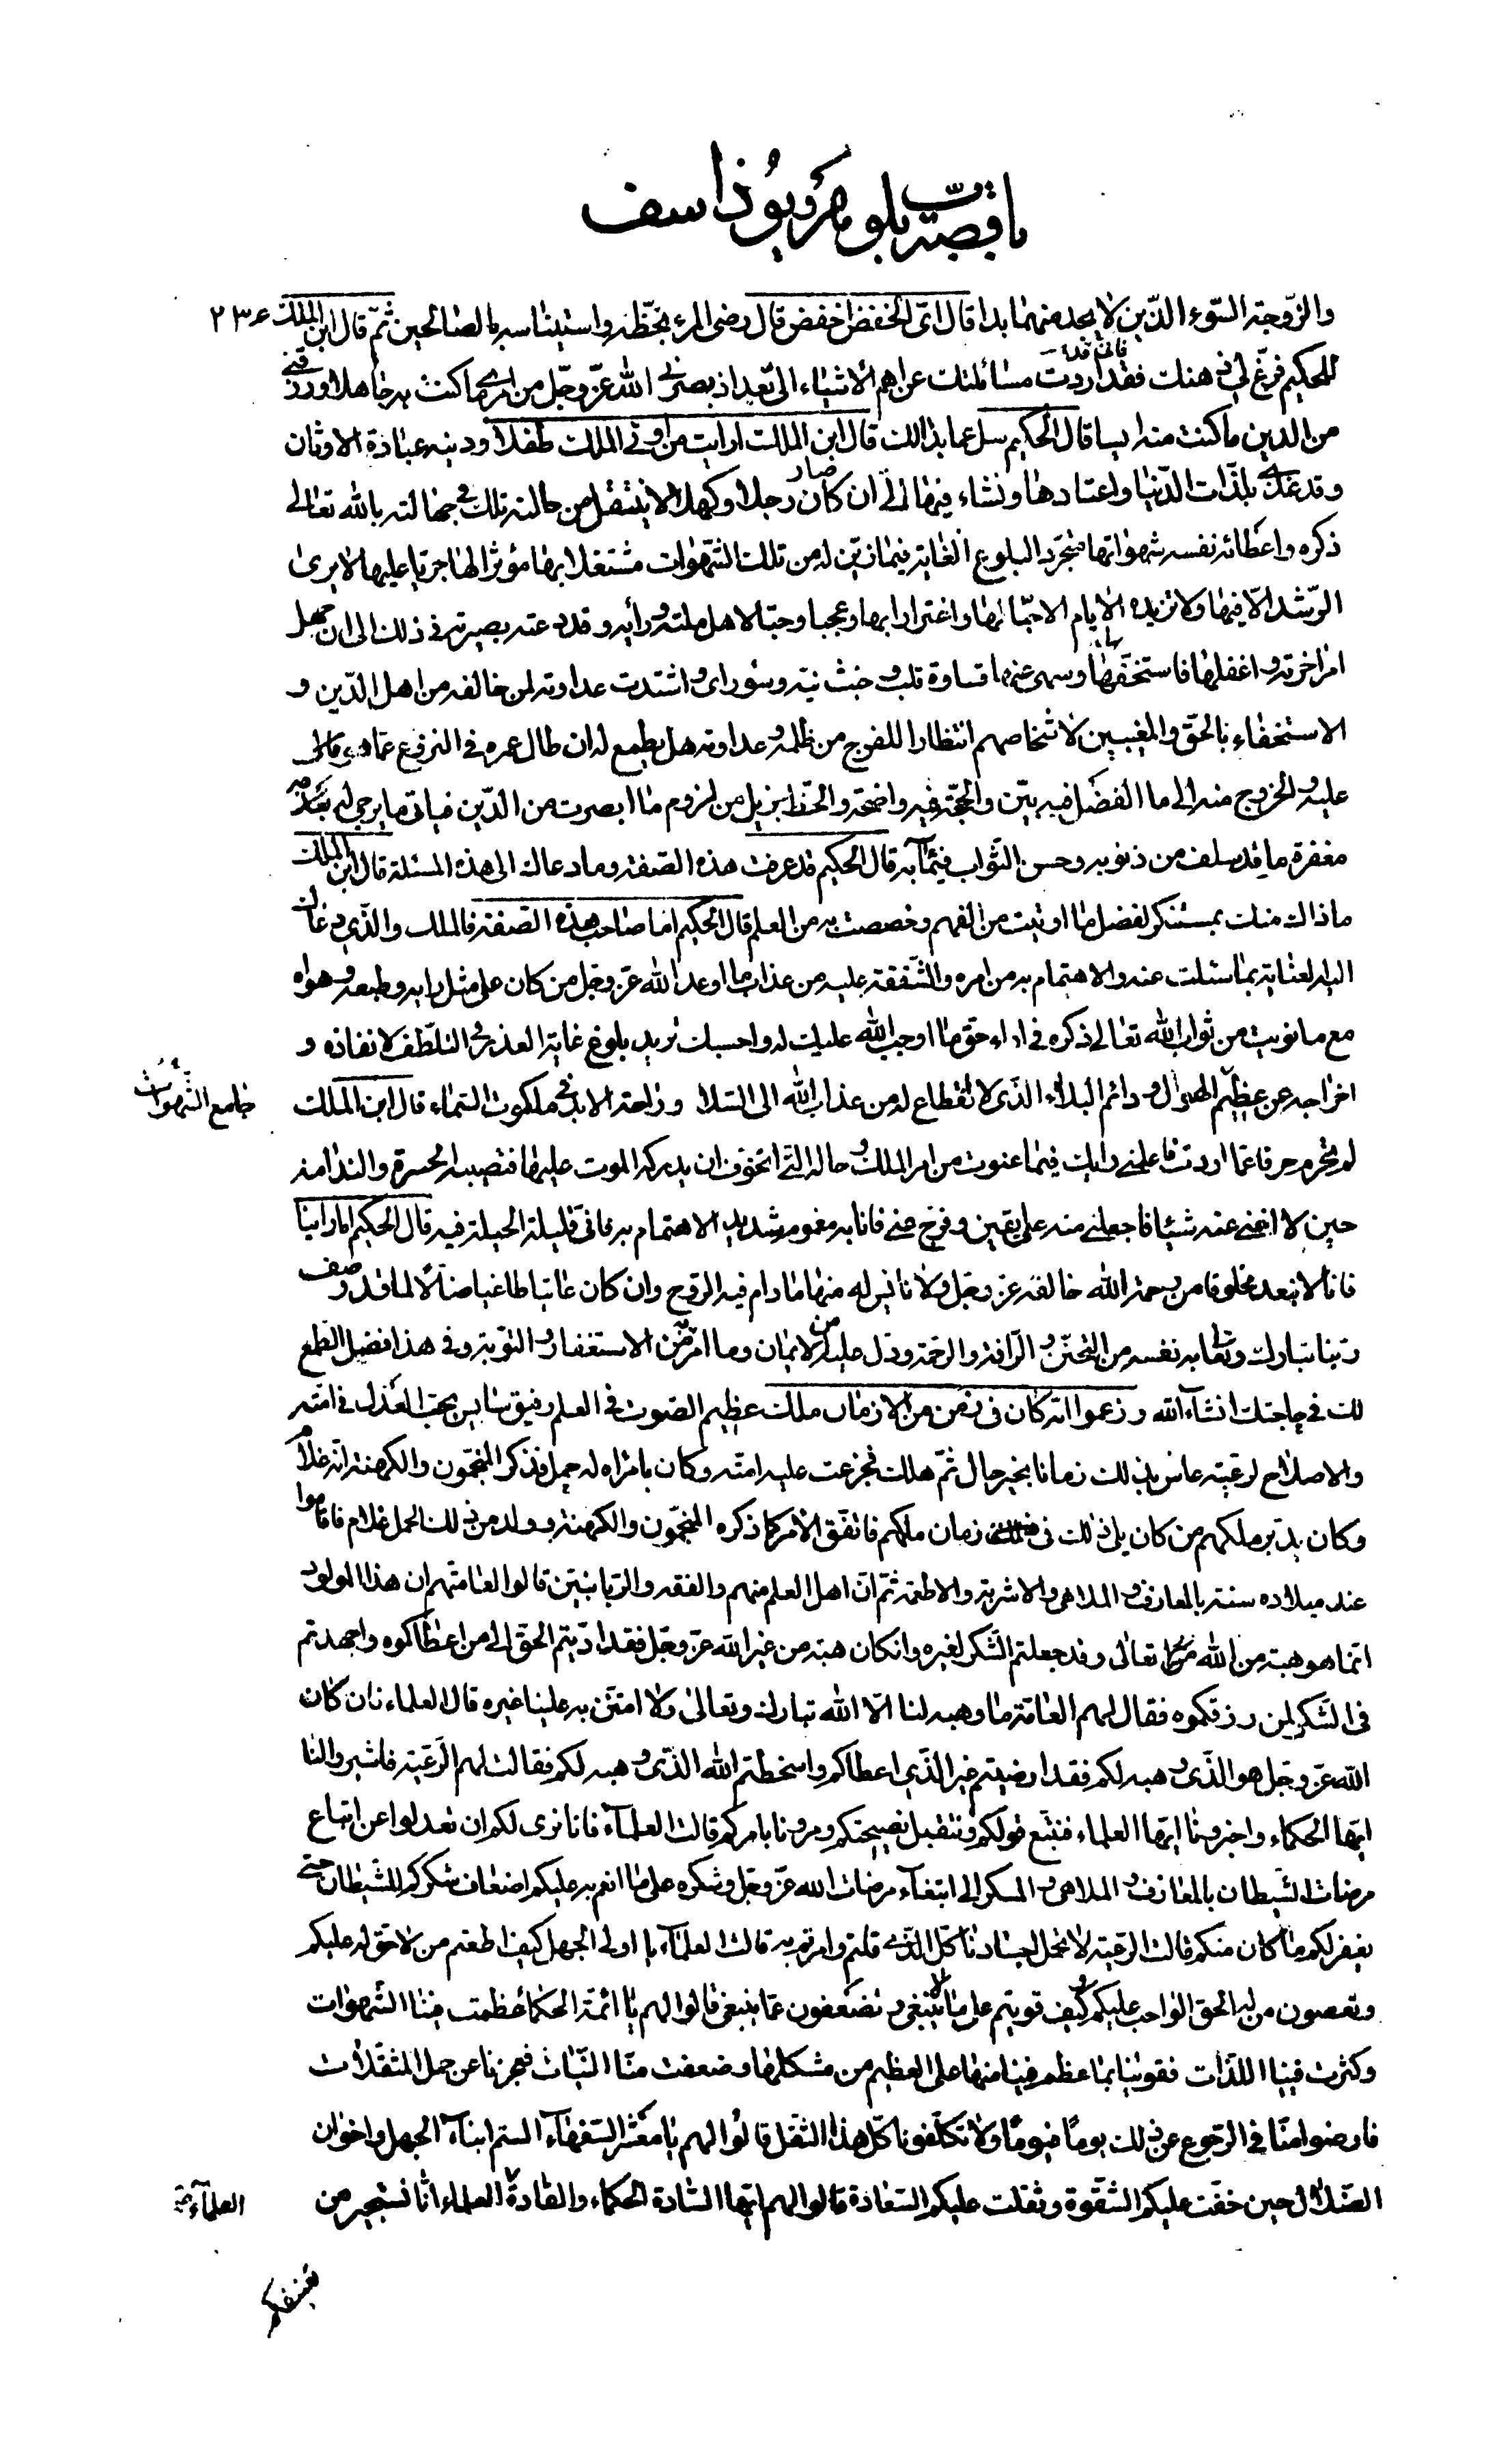 باب قصة بلوهر و يوذاسف
والزّوجة السّوء الذّين لا يجد منهما بدا قال اىّ الخفض اخفض قال رضى المرء بحظّه و استيناسه بالصّالحين ثمّ قال ابن الملك ٢٣٤
للحكيم فرّغ لى ذهنك فقد اردت مسائلتك عن اهمّ الاشياء الىّ بعد اذ بصّرنى الله عزّ وجلّ من امرى ما كنت به جاهلا و رزقنى
من الدين ما كنت منه ايسا قال الحكيم سل عما بدا لك قال ابن الملك ارايت من اوتى الملك طفلا و دينه عبادة الاوثان
و قد غذى بلذّات الدّنيا و اعتادها و نشاء فيها الى ان كان رجلا و كهلا لا ينتقل من حالته تلك فى جهالته بالله تعالى
ذكره و اعطائه نفسه شهواتها متجرّدا لبلوغ الغاية فيما زيّن له من تلك الشّهوات مشتغلا بها مؤثرا لها جريا عليها لا يرى
الرّشد الّا فيها و لا تزيده الايام الا حبّا لها و اغترارا بها و عجبا و حبّا لاهل ملته و رأيه و قد دعته بصيرته فى ذلك الى ان جهل
امر اخرته و اغفلها فاستخفّ بها و سهى عنها قساوة قلب و خبث نية و سوء راى و اشتدت عداوته لمن خالفه من اهل الدّين و
الاستخفاء بالحقّ و المغيبين لاشخاصهم انتظارا للفرج من ظلمه و عداوته هل يطمع له ان طال عمره فى النزوع عمّا هو
عليه و الخروج منه الى ما الفضل فيه بيّن و الحجّة فيه واضحة و الحظّ جزيل من لزوم ما ابصرت من الدّين فياتى ما يرجى له بعد
مغفرة ما قد سلف من ذنوبه و حسن الثّواب فى مآبه قال الحكيم قد عرفت هذه الصّفة و ما دعاك الى هذه المسئلة قال ابن الملك
ماذاك منك بمستنكر لفضل ما اوتيت من الفهم و خصصت به من العلم قال الحكيم اما صاحب هذه الصّفة فالملك و الّذى دعاك
اليه لعناية بما سئلت عنه و الاهتمام به من امره و الشّفقة عليه من عذاب ما اوعد الله عزّ وجلّ من كان على مثل رايه و طبعه و هواه
مع ما نويت من ثواب الله تعالى ذكره فى اداء حق ما اوجب الله عليك له و احسبك تريد بلوغ غاية العذر فى التلطّف لانقاذه و
اخراجه عن عظيم الهول و دائم البلاء الذى لا انقطاع له من عذاب الله الى السّلامة و راحة الابد فى ملكوت السّماء قال ابن الملك
لم تخرم حرفا عمّا اردت فاعلمنى رايك فيما عنوت من امر الملك و حاله التى اتخوّف ان يدركه الموت عليها فتصيبه الحسرة و الندامة
حين لا اغنى عنه شيئا فاجعلنى منه على يقين و فرّج عنى فانا به مغموم شديد الاهتمام به فانّى قليلة الحيلة فيه قال الحكيم اما راينا
فانا لا نبعد مخلوقا من رحمة الله خالقه عزّ وجلّ و لا نايس له منها ما دام فيه الروح و ان كان عاتيا طاغيا ضالّا لما قد وصف
ربّنا تبارك و تعالى به نفسه من التحنّن و الرّافة و الرحمة و دلّ عليه من الايمان و ما امر به من الاستغفار و التوبة و فى هذا فضل الطمع
لك فى حاجتك انشآء الله و زعموا انه كان فى زمن من الازمان ملك عظيم الصّوت فى العلم رفيق سايس يحبّ العدل فى امّته
و الاصلاح لرعيته عاش بذلك زمانا بخير حال ثمّ هلك فجزعت عليه امّته و كان بامراه له حمل فذكر المنجّمون و الكهنة انّه غلام
و كان يدبّر ملكهم من كان يلى ذلك فى زمان ملكهم فاتّفق الامر كما ذكره المنجّمون و الكهنة و ولد من ذلك الحمل غلام فاقاموا
عند ميلاده سنة بالمعازف و الملاهى و الاشربة و الاطعمة ثمّ انّ اهل العلم منهم و الفقه و الرّبّانيّين قالوا لعامّتهم ان هذا المولود
انّما هو هبة من الله تعالى و قد جعلتم الشّكر لغيره و انكان هبة من غير الله عزّ وجلّ فقد ادّيتم الحقّ الى من اعطاكموه و اجتهدتم
فى الشكر لمن رزقكموه فقال لهم العامّة ما وهبه لنا الّا الله تبارك و تعالى و لا امتنّ به علينا غيره قال العلماء فان كان
الله عزّ وجلّ هو الذّى وهبه لكم فقد ارضيتم غير الّذى اعطاكم و اسخطتم الله الذّى وهبه لكم فقالت لهم الرّعيّة فاشيروا لنا
ايّها الحكماء و اخبرونا ايّها العلماء فنتّبع قولكم و نتقبل نصيحتكم و مرونا بامركم قالت العلمآء فانا نرى لكم ان تعدلوا عن اتباع
مرضات الشّيطان بالمعازف و الملاهى و المسكر الى ابتغآء مرضات الله عزّ وجلّ و شكره على ما انعم به عليكم اضعاف شكركم للشّيطان حتى
يغفر لكم ما كان منكم قالت الرعيّة لا تحمل اجسادنا كلّ الّذى قلتم و امرتم به قالت العلمآء يا اولى الجهل كيف اطعتم من لا حقّ له عليكم
و تعصون من له الحق الواجب عليكم و كيف قويتم على ما لا ينبغى و تضعفون عمّا ينبغى قالوا لهم يا ائمّة الحكماء عظمت فينا الشّهوات
و كثرت فينا اللذّات فقوينا بما عظم فينا منها على العظيم من شكلها و ضعفت منّا النيّات فعجزنا عن حمل المثقلات
فارضوا منّا فى الرّجوع عن ذلك يوماً فيوماً و لا تكلّفونا كلّ هذا الثقل قالوا لهم يا معشر السّفهآء الستم ابنآء الجهل و اخوان
الضّلال حين خفّت عليكم الشّقوة و ثقلت عليكم السّعادة قالوا لهم ايّها السّادة الحكماء و القادة العلماء انّا نستجير من